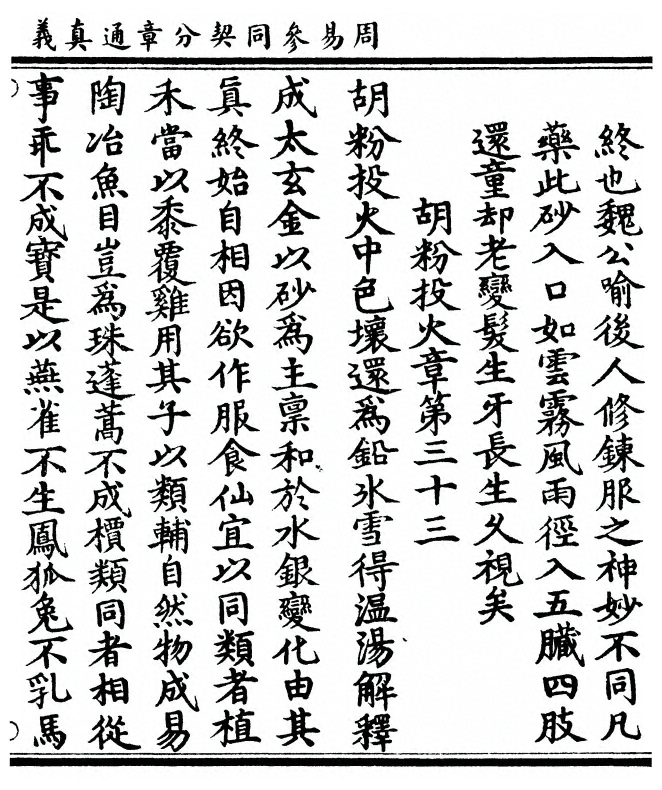 周易參同契分章通真義
終也魏公喻後人修鍊服之神妙不同凡
藥此砂入口如雲霧風雨徑入五臟四肢
還童却老變髮生牙長生久視矣
胡粉投火章第三十三
胡粉投火中色壞還為鉛氷雪得温湯解釋
成太玄金以砂為主禀和於水銀變化由其
真終始自相因欲作服食仙宜以同類者植
禾當以黍覆雞用其子以類輔自然物成易
陶冶魚目豈為珠蓬蒿不成檟類同者相從
事乖不成寶是以燕雀不生鳳狐兔不乳馬